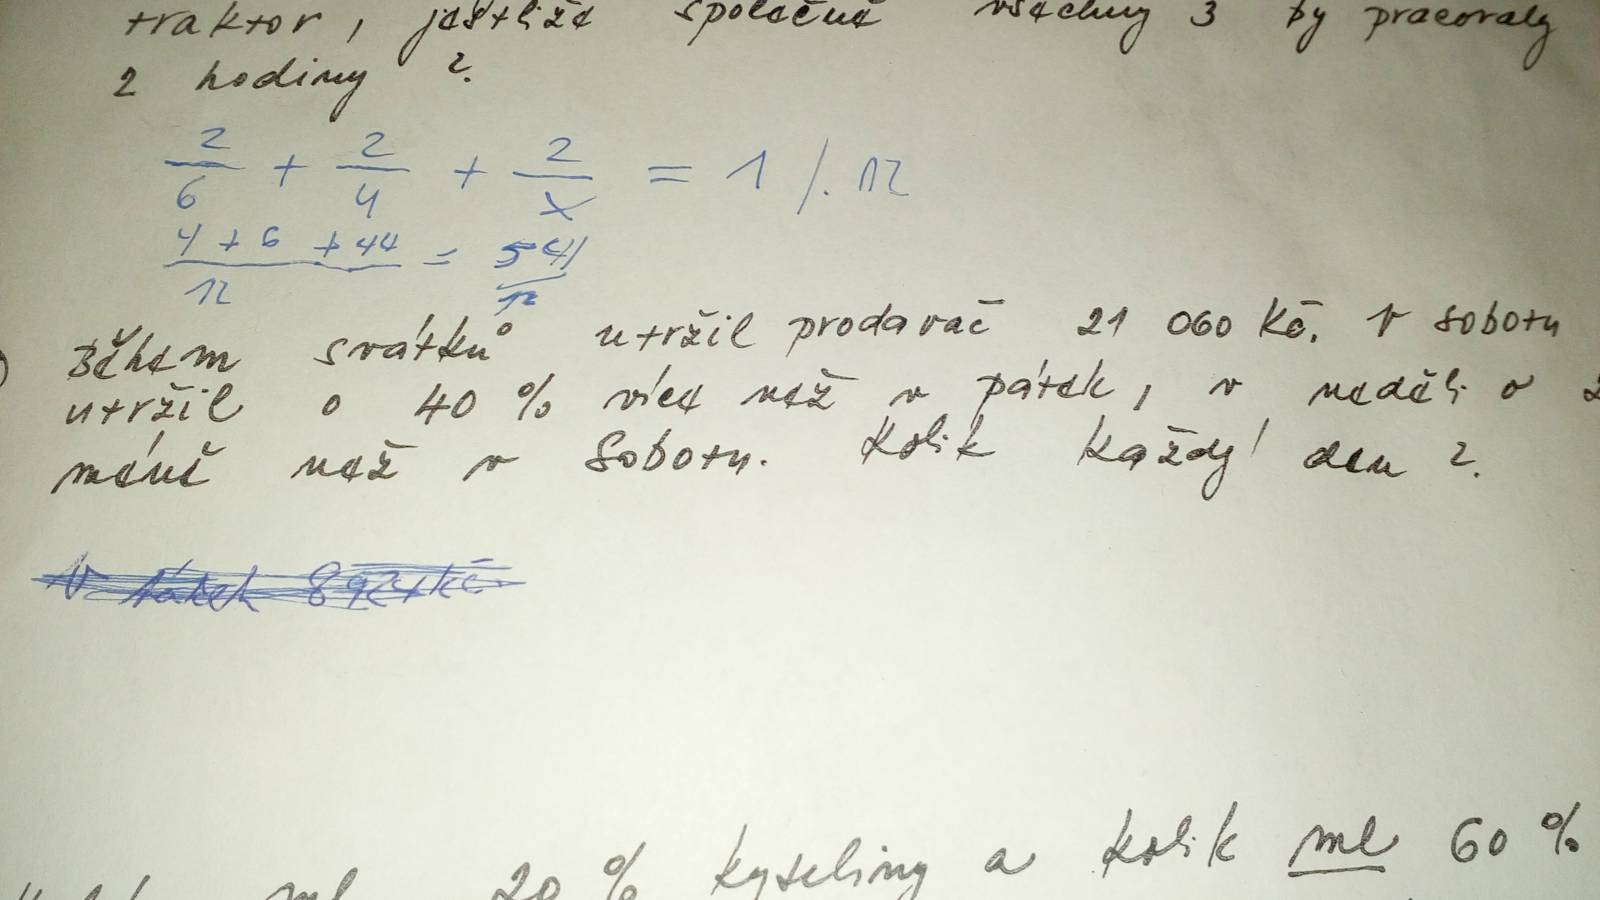 traktor, jestliže společně všechny 3 by pracovaly
2 hodiny?
2/6 + 2/4 + 2/x = 1 /. 12
4 + 6 + 44 / 12 = 54 / 12
Během svátků utržil prodavač 21 060 Kč. V sobotu
utržil o 40 % více než v pátek, v neděli o
méně než v sobotu. Kolik každý den?
V pátek
ml 20 % kyseliny a kolik ml 60 %